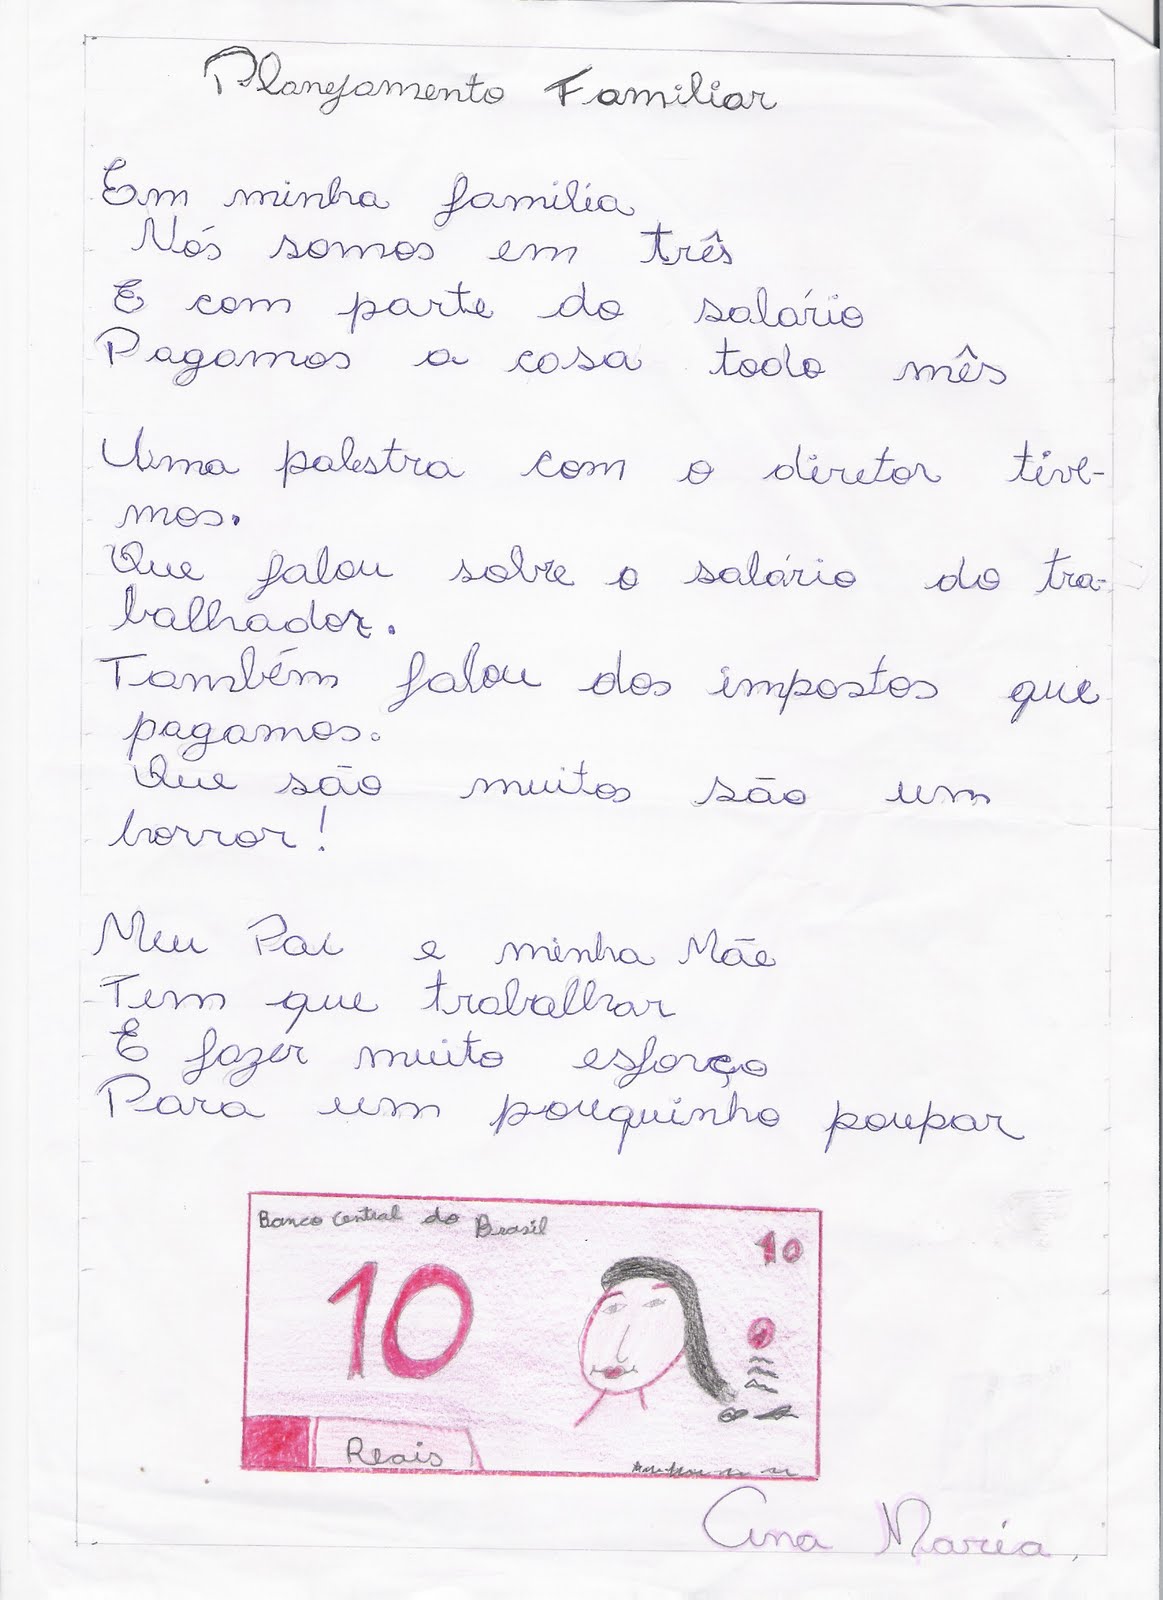 Planejamento Familiar
Em minha familia
Nós somos em três
E com parte do salário
Pagamos a casa todo mês
Uma palestra com o diretor tive-
mos.
Que falou sobre o salário do tra-
balhador.
Também falou dos impostos que
pagamos.
Que são muitos são um
horror!
Meu Pai e minha Mãe
Tem que trabalhar
E fazer muito esforço
Para um pouquinho poupar
Banco Central do Brasil
10
10
Reais
Ana Maria